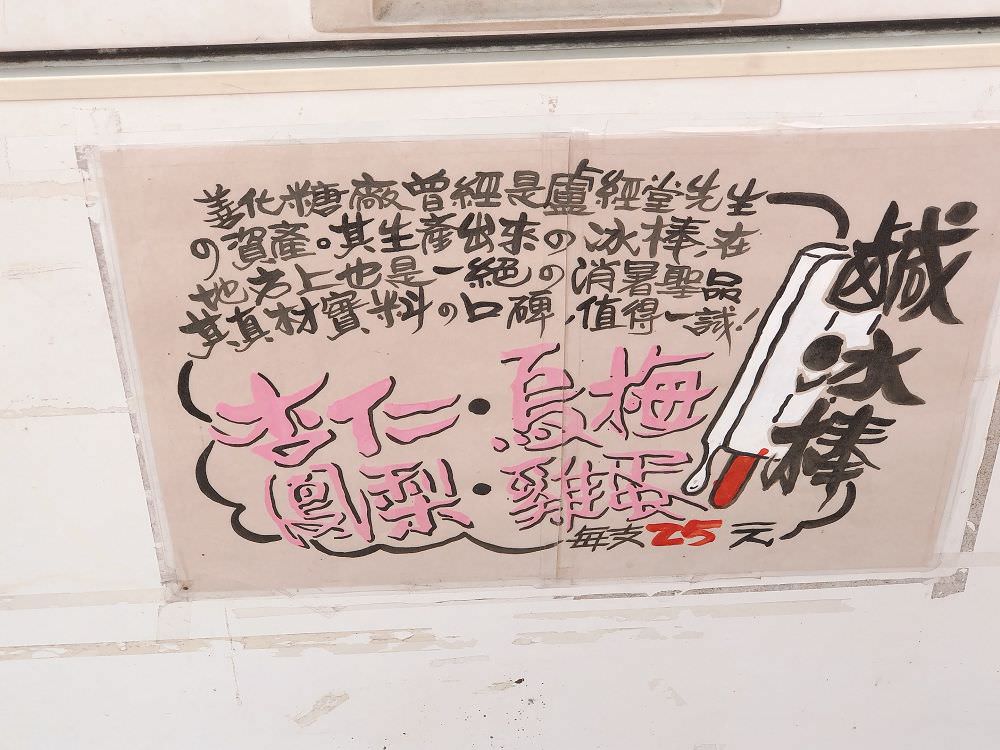 善化糖廠曾經是盧經堂先生
の資產。其生產出來の冰棒,在
地方上也是一絕の消暑聖品
其真材實料の口碑,值得一試!
鹹冰棒
杏仁・烏梅
鳳梨・雞蛋
每支25元